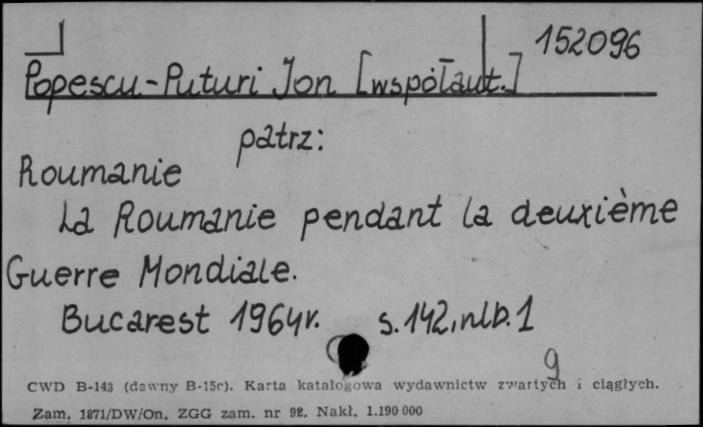 152096
Popescu-Puturi Jon [współaut.]
patrz:
Roumanie
La Roumanie pendant la deuxième
Guerre Mondiale.
Bucarest 1964r. s.142, nlb.1
9
CWD B-143 (dawny B-15c). Karta katalogowa wydawnictw zwartych i ciągłych.
Zam. 1871/DW/On. ZGG zam. nr 92. Nakł. 1.190 000